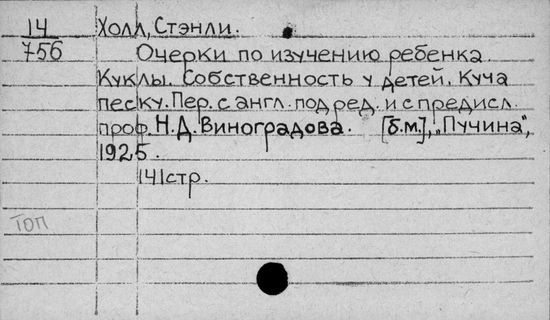 14 Холл, Стэнли.
756 Очерки по изучению ребенка.
Куклы. Собственность у детей. Куча
песку. Пер. с англ. под ред. и с предисл.
проф. Н.Д. Виноградова. [б.м.], "Пучина",
1925.
141стр.
ТОП